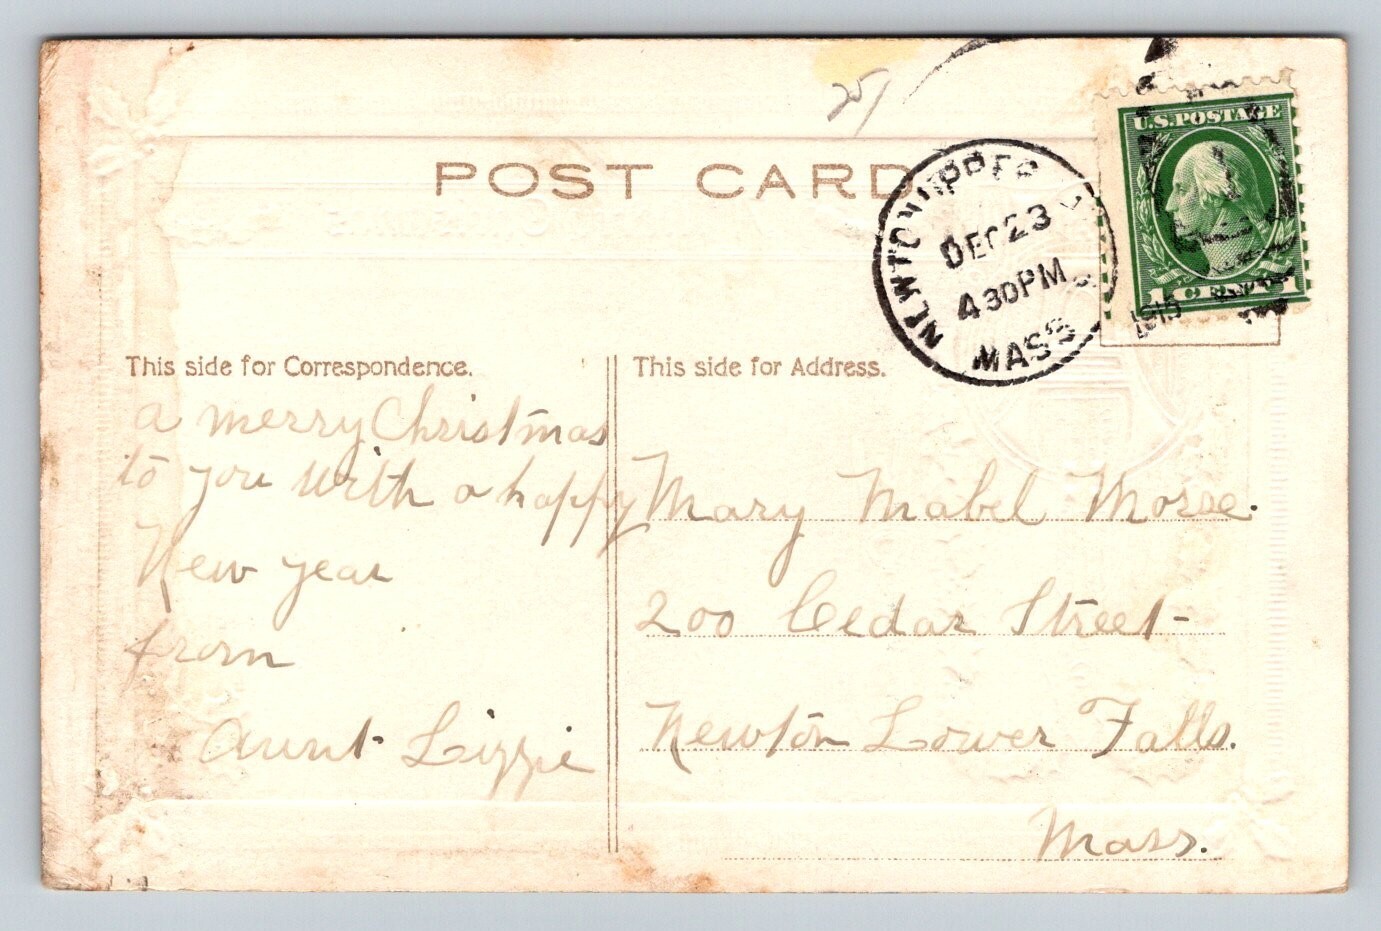 25/
POST CARD
U.S.POSTAGE
1 CENT 1
NEWTON UPPER
DEC 23
4 30PM
MASS
1915
This side for Correspondence.
a merry Christmas
to you with a happy
New year
from
Aunt Lizzie
This side for Address.
Mary Mabel Morse.
200 Cedar Street
Newton Lower Falls.
Mass.